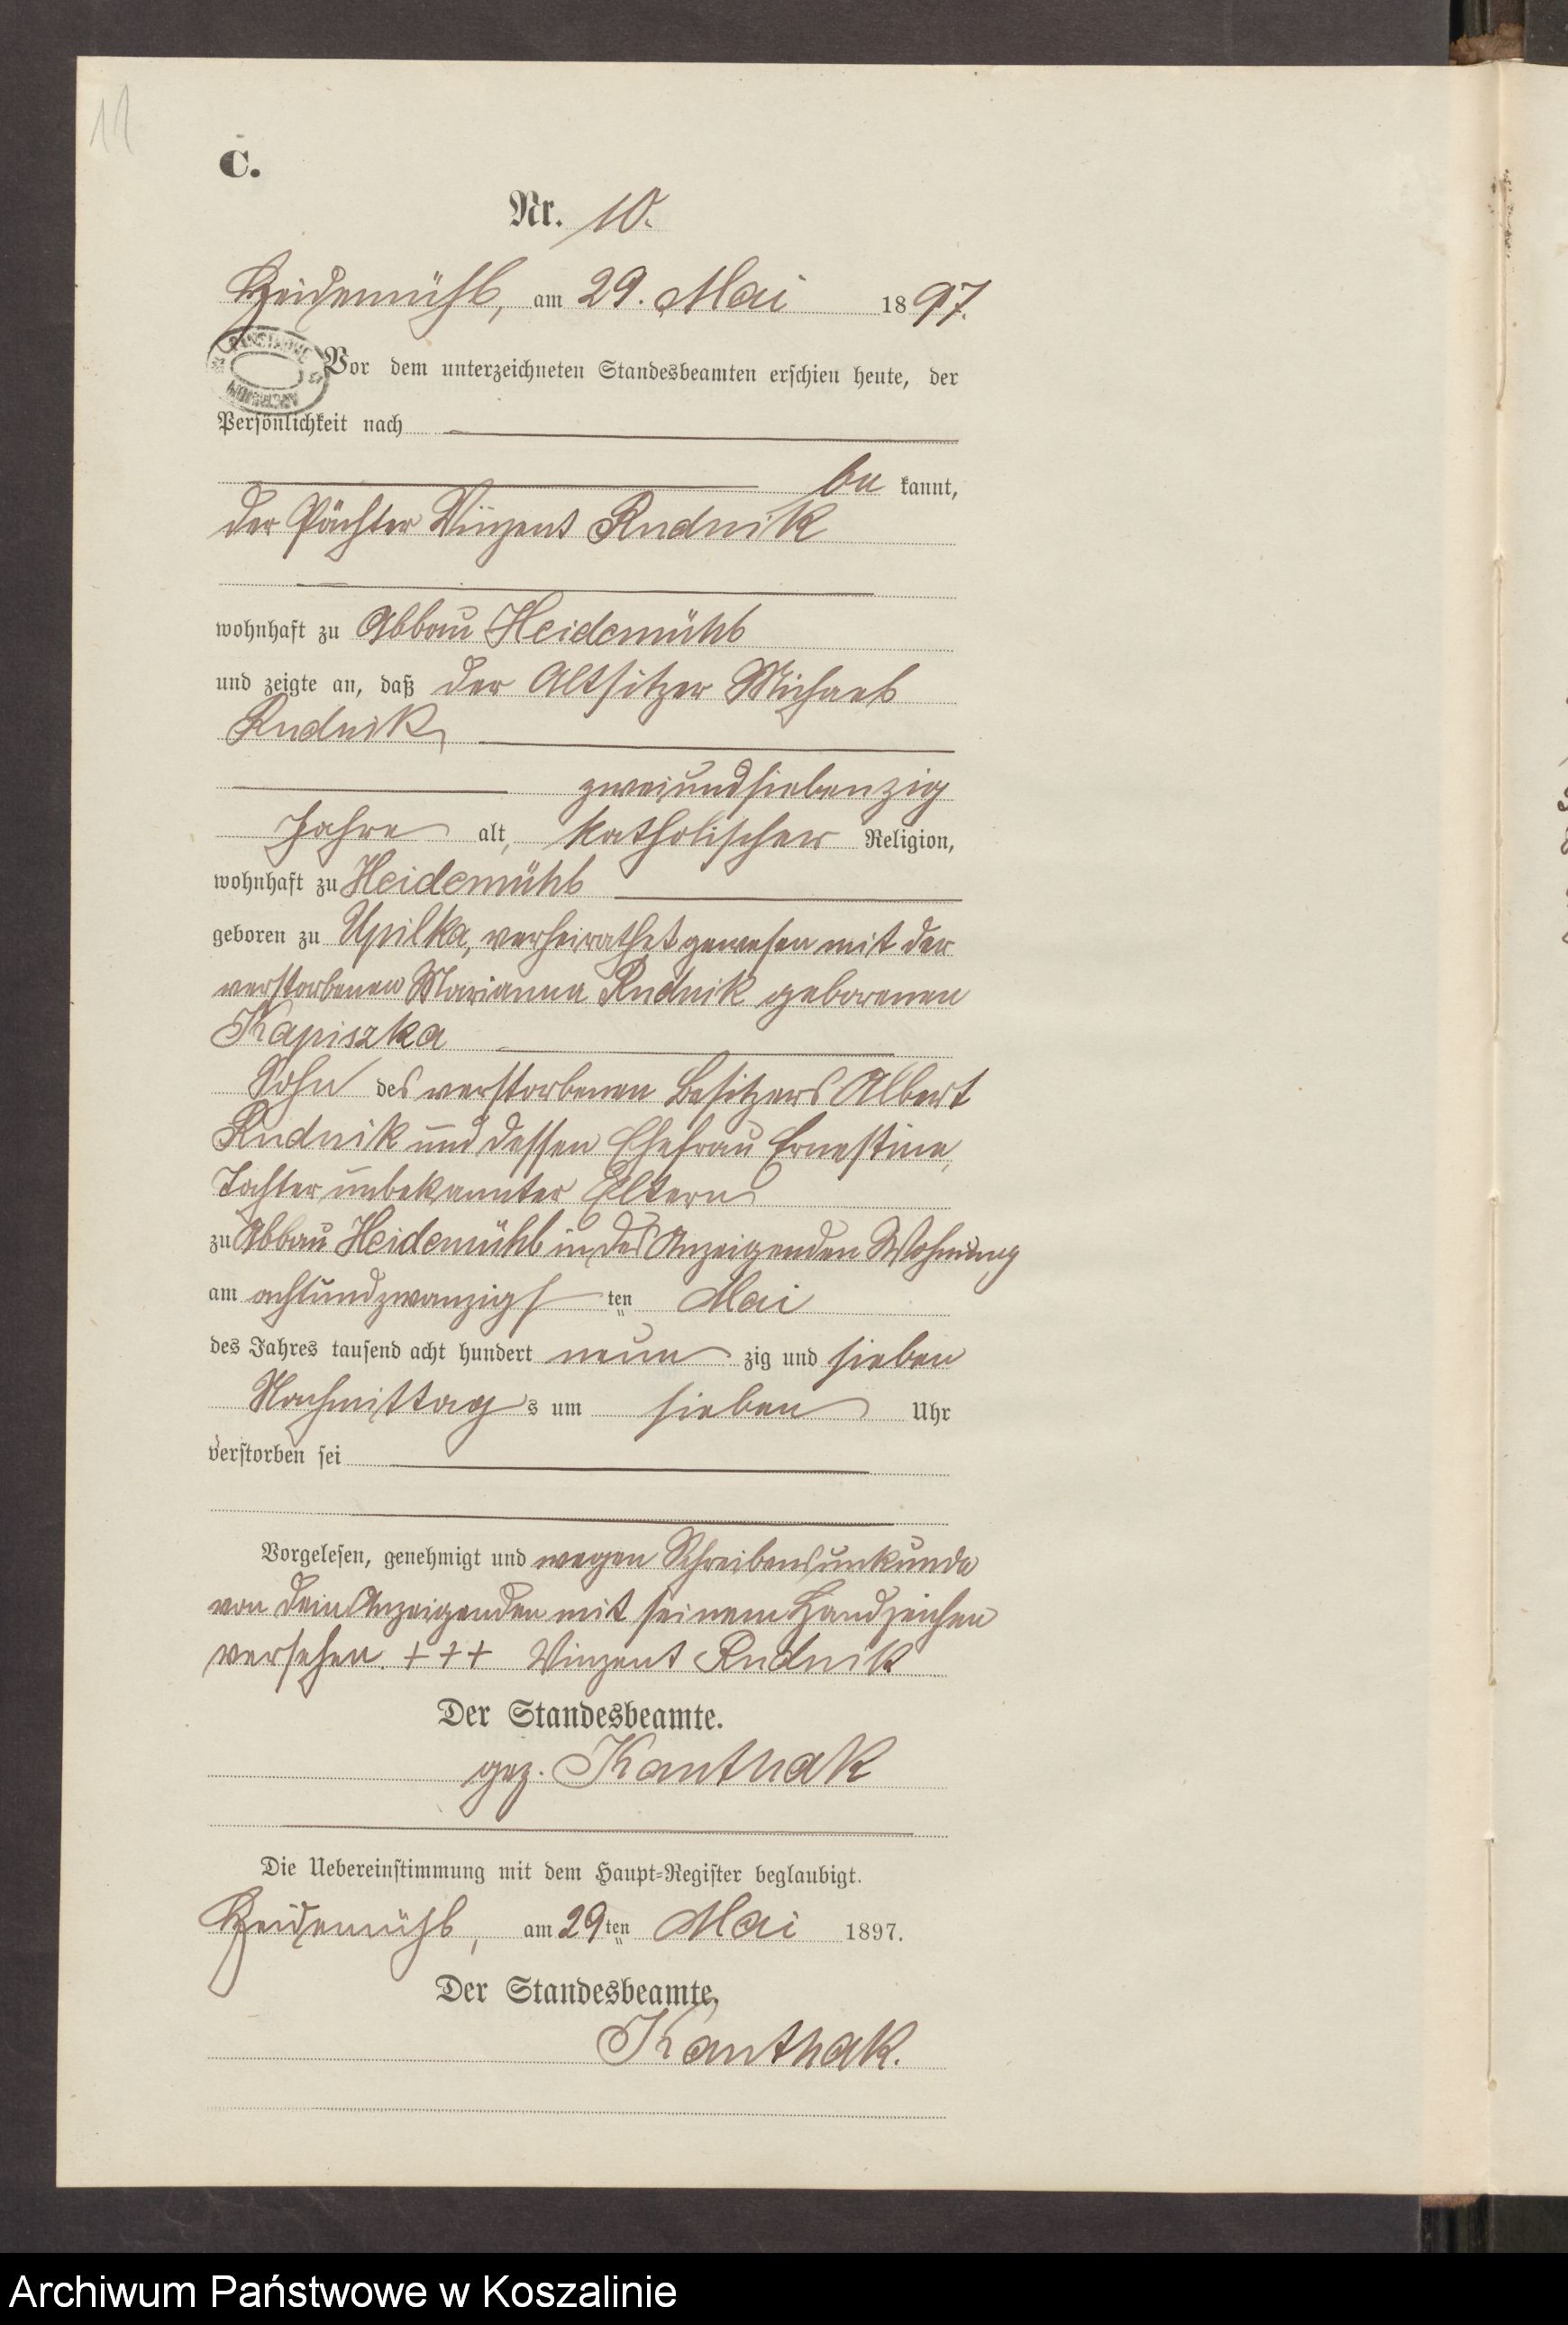 11
C.
Nr. 10.
Heidemühl, am 29. Mai 1897.
Vor dem unterzeichneten Standesbeamten erschien heute, der
Persönlichkeit nach
be kannt,
der Pächter Vinzent Rudnik
wohnhaft zu Abbau Heidemühl
und zeigte an, daß der Altsitzer Michael
Rudnik
zweiundsiebenzig
Jahre alt, katholischer Religion,
wohnhaft zu Heidemühl
geboren zu Upilka, verheirathet gewesen mit der
verstorbenen Marianna Rudnik geborenen
Kapiszka
Sohn des verstorbenen Besitzers Albert
Rudnik und dessen Ehefrau Ernestine,
Tochter unbekannter Eltern
zu Abbau Heidemühl in des Anzeigenden Wohnung
am achtundzwanzigs ten Mai
des Jahres tausend acht hundert neun zig und sieben
Nachmittag s um sieben Uhr
verstorben sei
Vorgelesen, genehmigt und wegen Schreibensunkunde
von dem Anzeigenden mit seinem Handzeichen
versehen. + + + Vinzent Rudnik
Der Standesbeamte.
gez. Kanthak
Die Uebereinstimmung mit dem Haupt-Register beglaubigt.
Heidemühl, am 29ten Mai 1897.
Der Standesbeamte.
Kanthak.
Archiwum Państwowe w Koszalinie